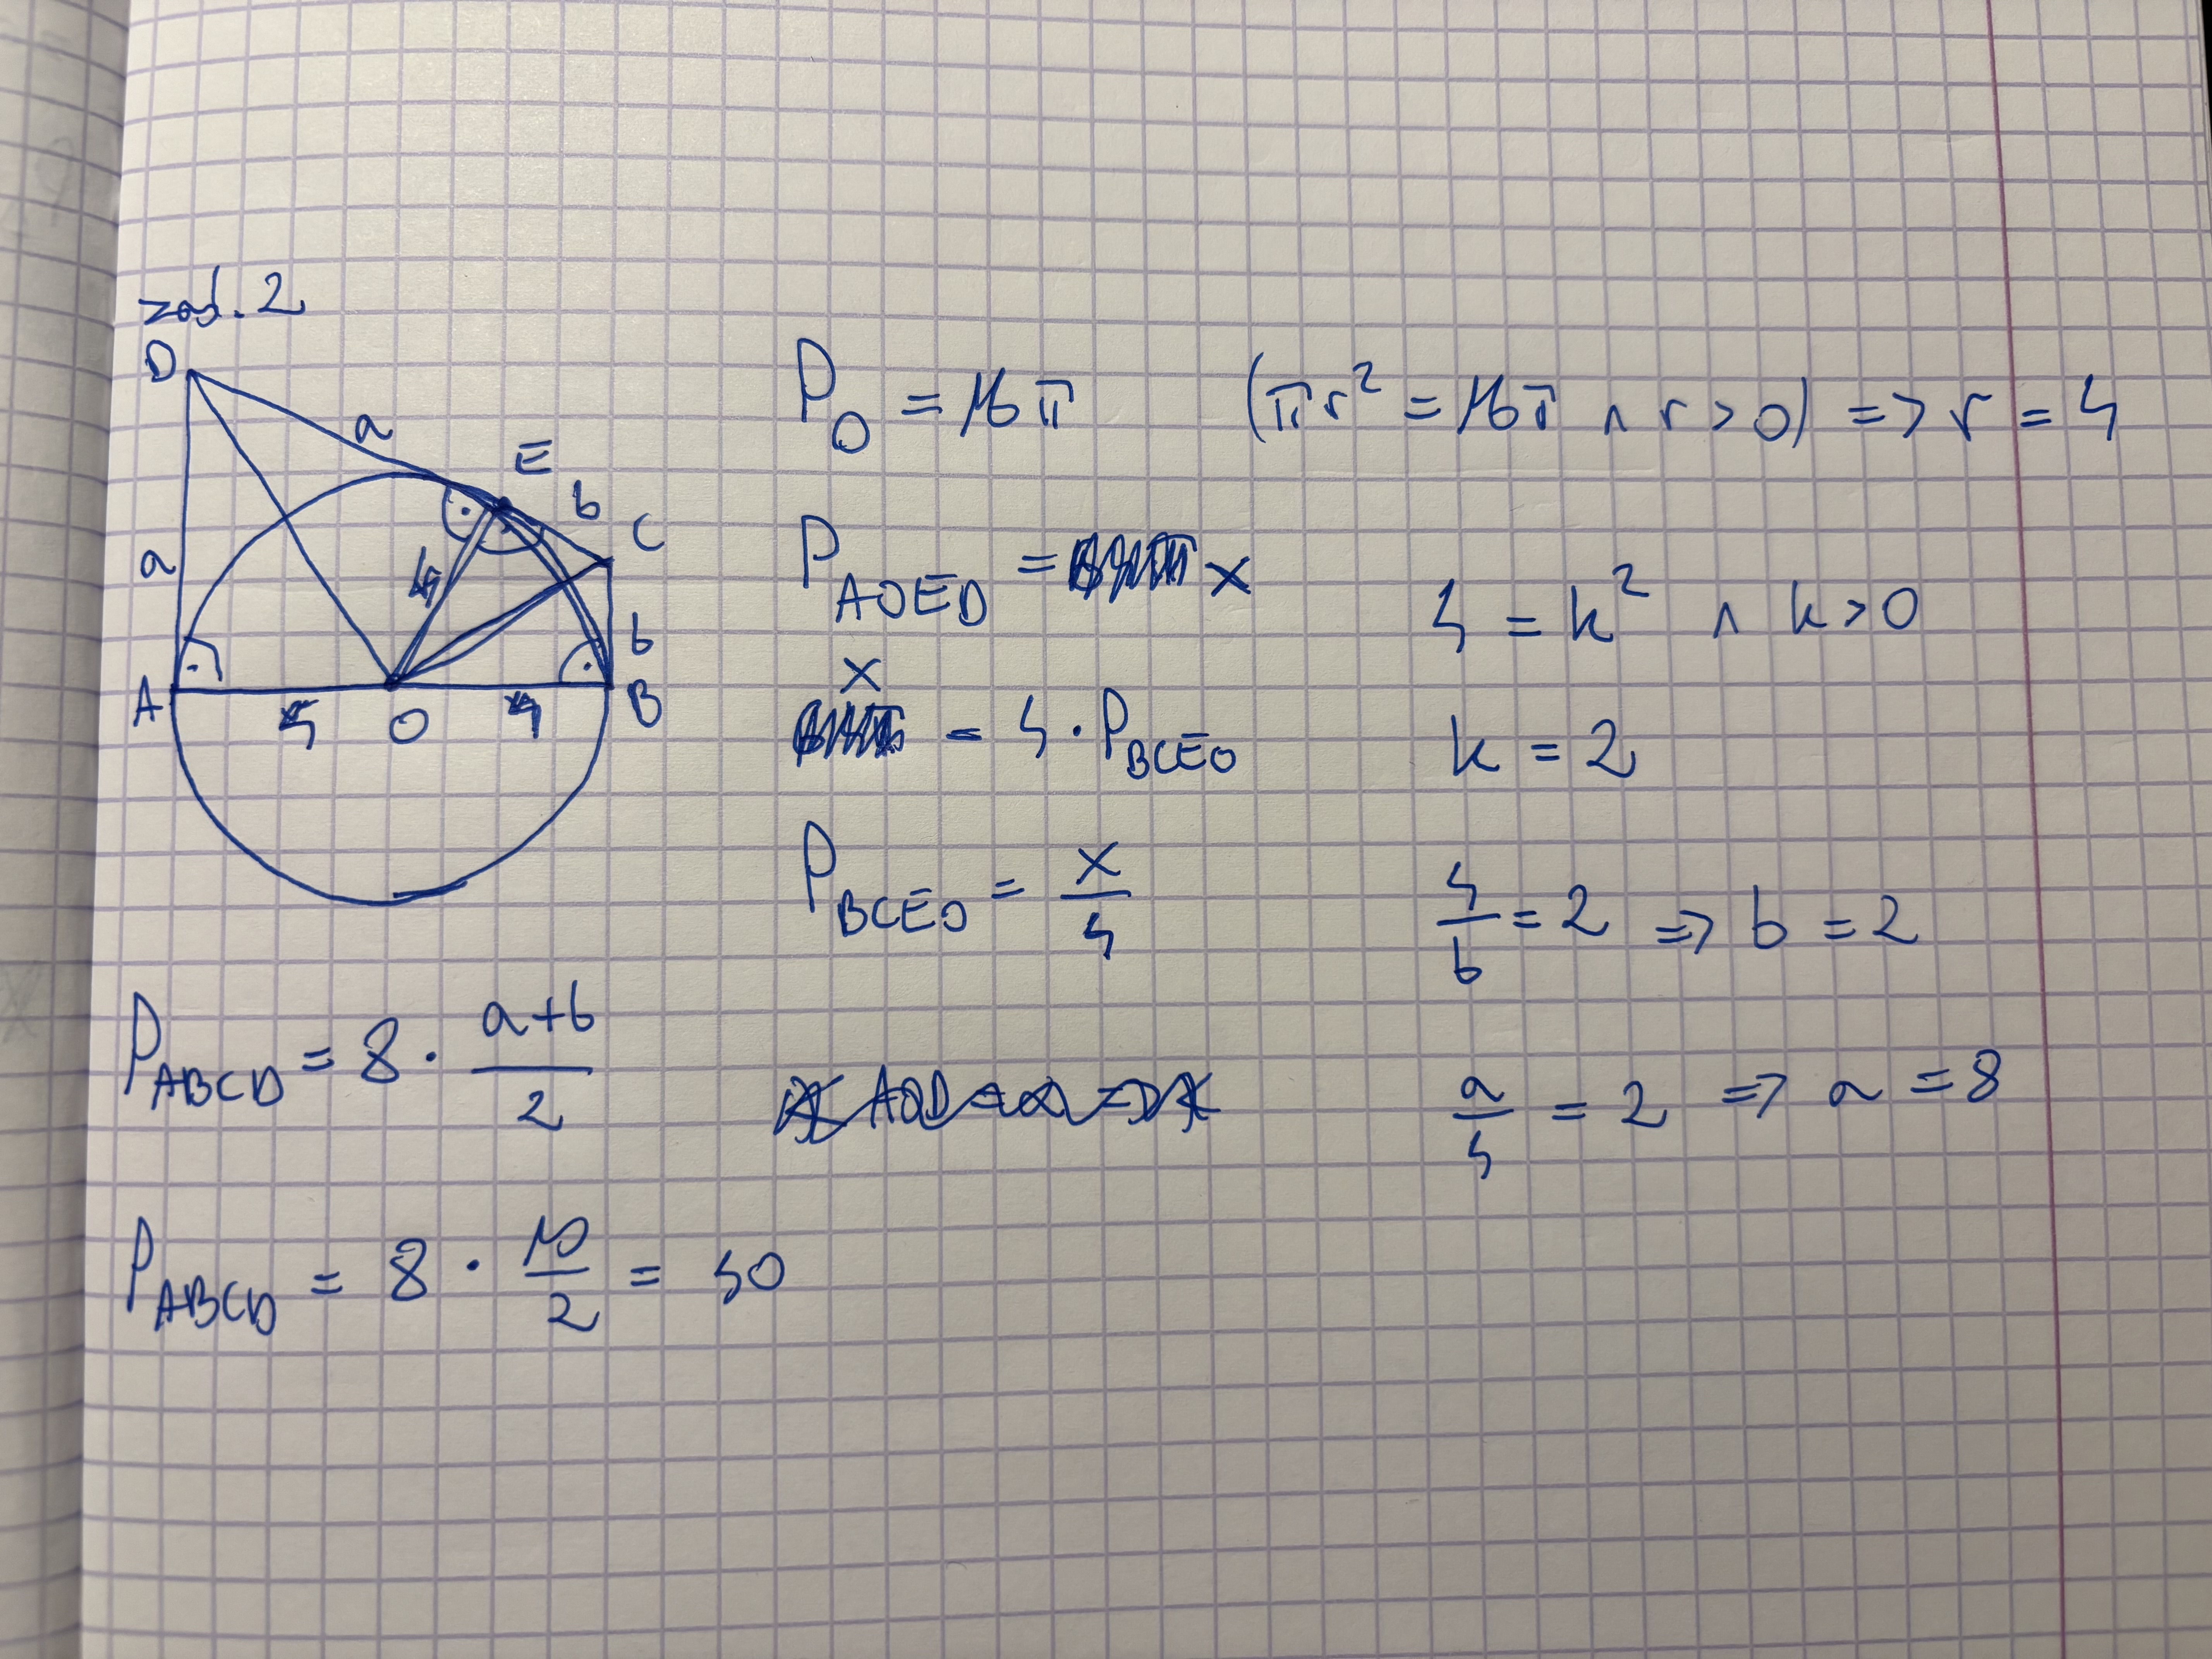 zad. 2
D
a
E
b
C
a
4
b
A
4
O
4
B
P_O = 16π (πr² = 16π ∧ r > 0) => r = 4
P_AOED = x
4 = k² ∧ k > 0
x = 4 · P_BCEO
k = 2
P_BCEO = x/4
4/b = 2 => b = 2
P_ABCD = 8 · (a+b)/2
a/4 = 2 => a = 8
P_ABCD = 8 · 10/2 = 40